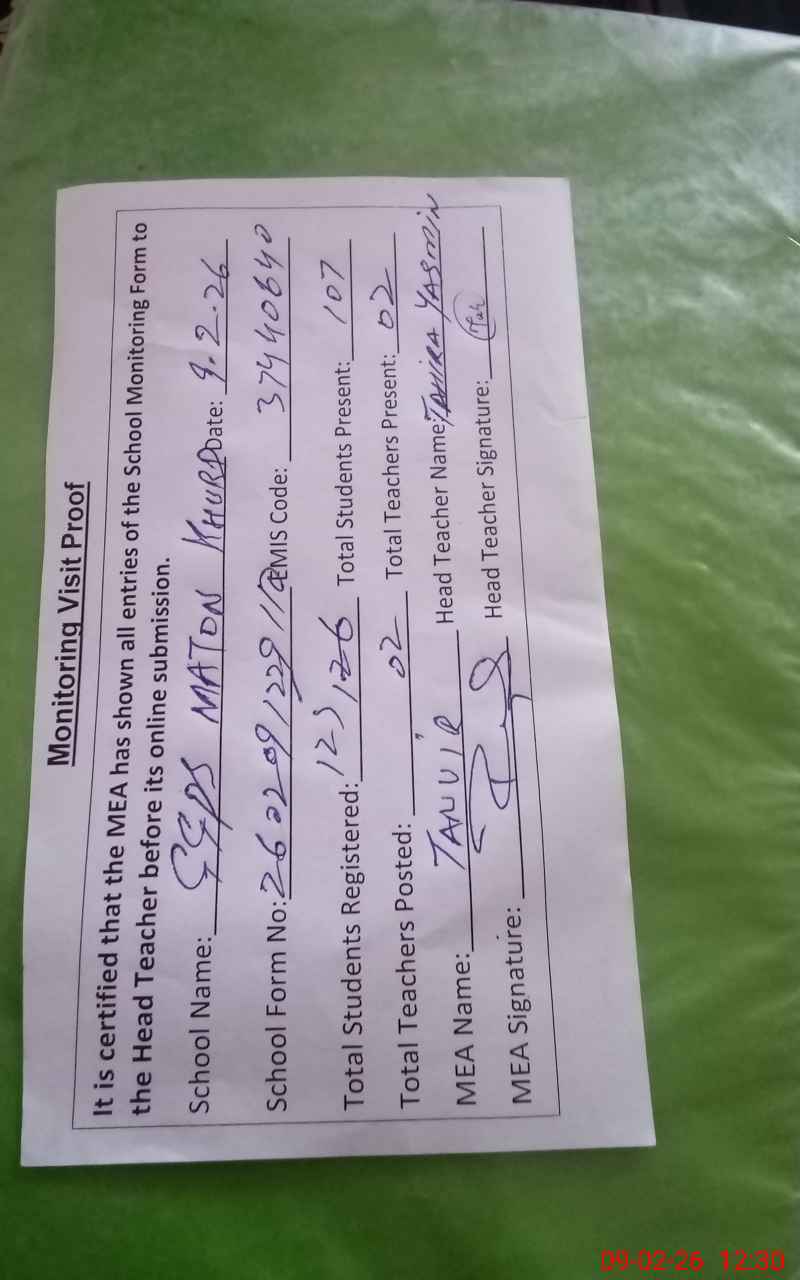 Monitoring Visit Proof
It is certified that the MEA has shown all entries of the School Monitoring Form to
the Head Teacher before its online submission.
School Name: GGPS MATON KHURD Date: 9.2.26
School Form No: EMIS Code: 37440640
Total Students Registered: 126 Total Students Present: 107
Total Teachers Posted: 02 Total Teachers Present: 02
MEA Name: TANVIR Head Teacher Name: TAHIRA YASMIN
MEA Signature: Head Teacher Signature:
09-02-26 12:30